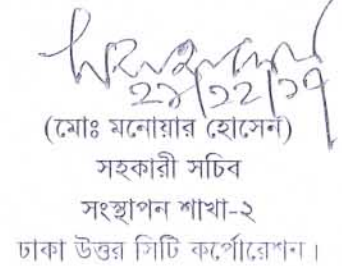 (মোঃ মনোয়ার হোসেন)
সহকারী সচিব
সংস্থাপন শাখা-২
ঢাকা উত্তর সিটি কর্পোরেশন।